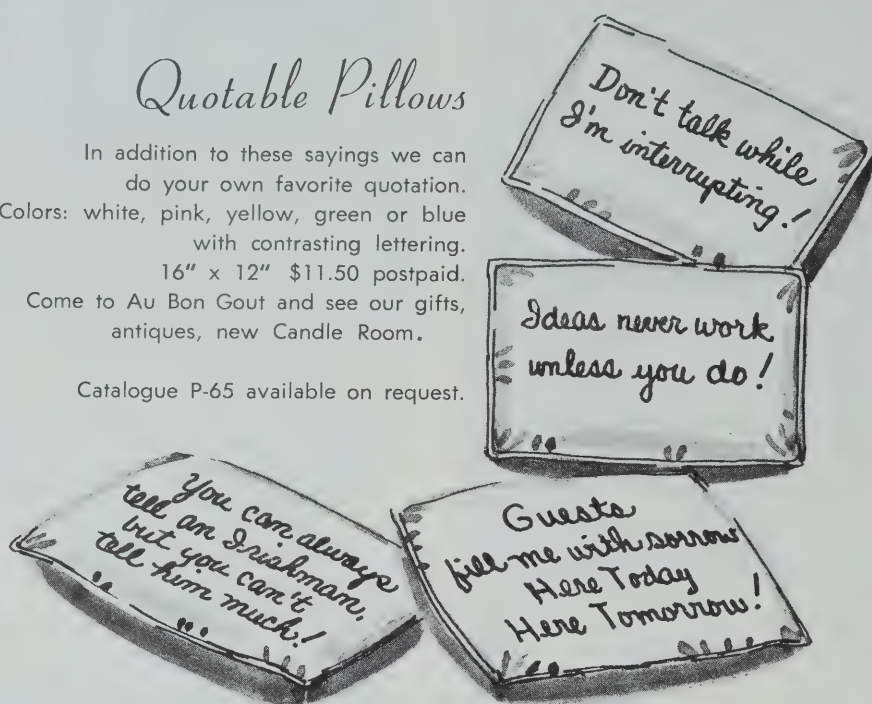 Quotable Pillows
In addition to these sayings we can
do your own favorite quotation.
Colors: white, pink, yellow, green or blue
with contrasting lettering.
16" x 12" $11.50 postpaid.
Come to Au Bon Gout and see our gifts,
antiques, new Candle Room.
Catalogue P-65 available on request.
Don't talk while
I'm interrupting!
Ideas never work
unless you do!
You can always
tell an Irishman,
but you can't
tell him much!
Guests
fill me with sorrow
Here Today
Here Tomorrow!